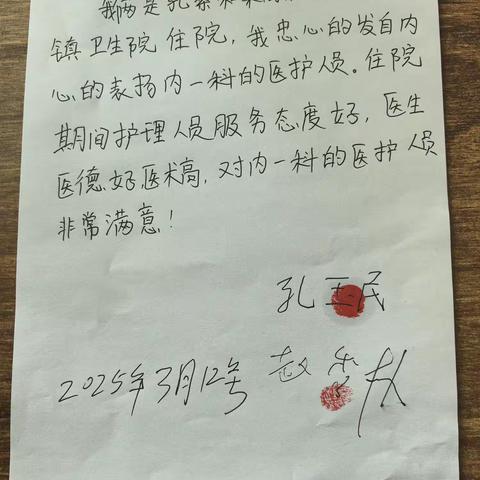 我俩是孔
镇卫生院住院,我忠心的发自内
心的表扬内一科的医护人员。住院
期间护理人员服务态度好,医生
医德好,医术高,对内一科的医护人员
非常满意!
孔玉民
2025年3月12号 赵秀